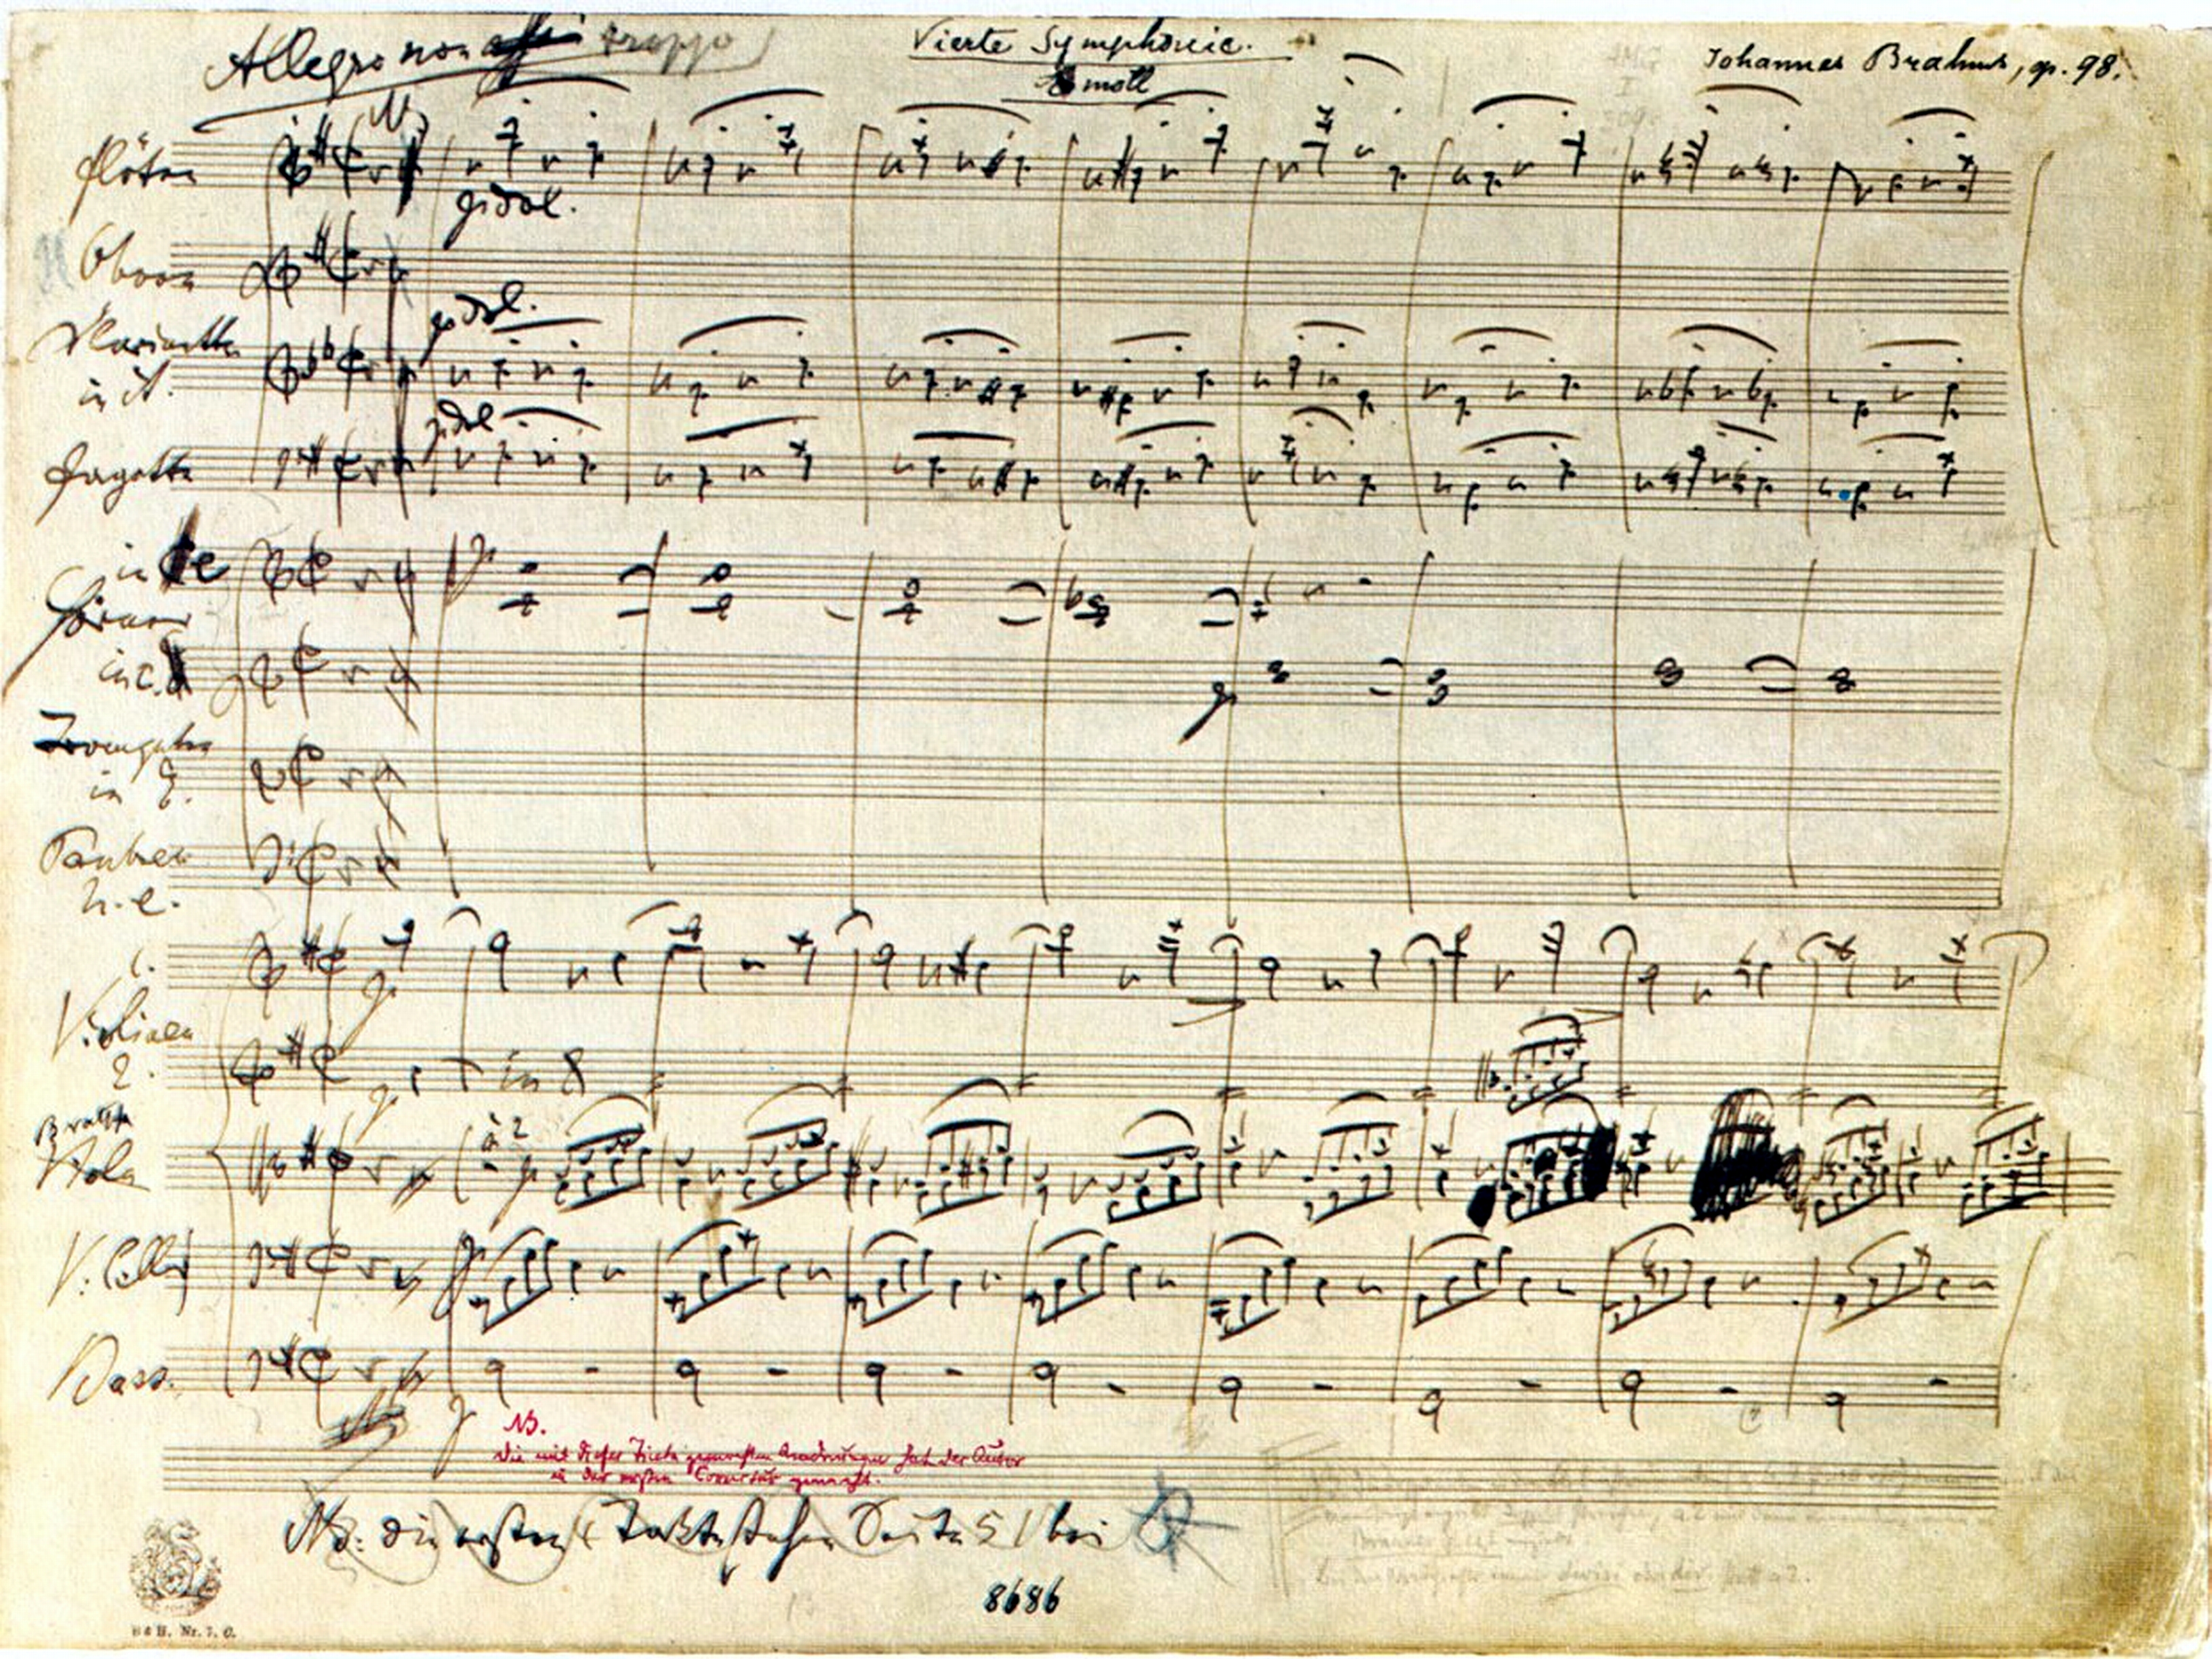 Allegro non assai troppo
Vierte Symphonie.
E moll
Johannes Brahms, op. 98.
Flöten
p dol.
Oboen
Klarinetten
in A.
p dol.
Fagotte
p dol
in e
Hörner
in c.
p
Trompeten
in E.
Pauken
h. e.
1.
Violinen
p
2.
p
in 8
Bratsche
Viola
à 2
p
V. Celli
p
Bass.
p
NB.
Die mit dieser Tinte gemachten Aenderungen hat der Autor
in der ersten Correctur gemacht.
NB: die ersten 4 Takte stehen Seite 51 bei
8686
B & H. Nr. 7. C.